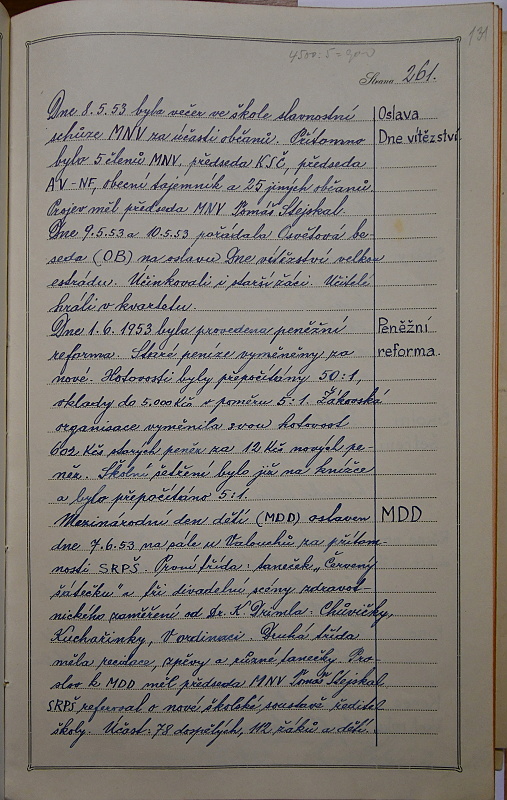 131
4500:5=900
Strana 261.
Dne 8.5.53 byla večer ve škole slavnostní
Oslava
schůze MNV za účasti občanů. Přítomno
Dne vítězství.
bylo 5 členů MNV, předseda KSČ, předseda
AV-NF, obecní tajemník a 25 jiných občanů.
Projev měl předseda MNV Tomáš Stejskal.
Dne 9.5.53 a 10.5.53 pořádala Osvětová be-
seda (OB) na oslavu Dne vítězství velkou
estrádu. Účinkovali i starší žáci. Učitelé
hráli v kvartetu.
Dne 1.6.1953 byla provedena peněžní
Peněžní
reforma. Staré peníze vyměněny za
reforma.
nové. Hotovosti byly přepočítány 50:1,
vklady do 5.000 Kčs v poměru 5:1. Žákovská
organisace vyměnila svou hotovost
602 Kčs starých peněz za 12 Kčs nových pe-
něz. Školní šetření bylo již na knížce
a bylo přepočítáno 5:1.
Mezinárodní den dětí (MDD) oslaven
MDD
dne 7.6.53 na sále u Valouchů za přítom-
nosti SRPŠ. První třída: taneček „Červený
šátečku" a tři divadelní scény zdravot-
nického zaměření od Dr. K. Drimla: Chůvičky,
Kuchařinky, V ordinaci. Druhá třída
měla recitace, zpěvy a různé tanečky. Pro-
slov k MDD měl předseda MNV Tomáš Stejskal.
SRPŠ referoval o nové školské soustavě ředitel
školy. Účast: 78 dospělých, 112 žáků a dětí.